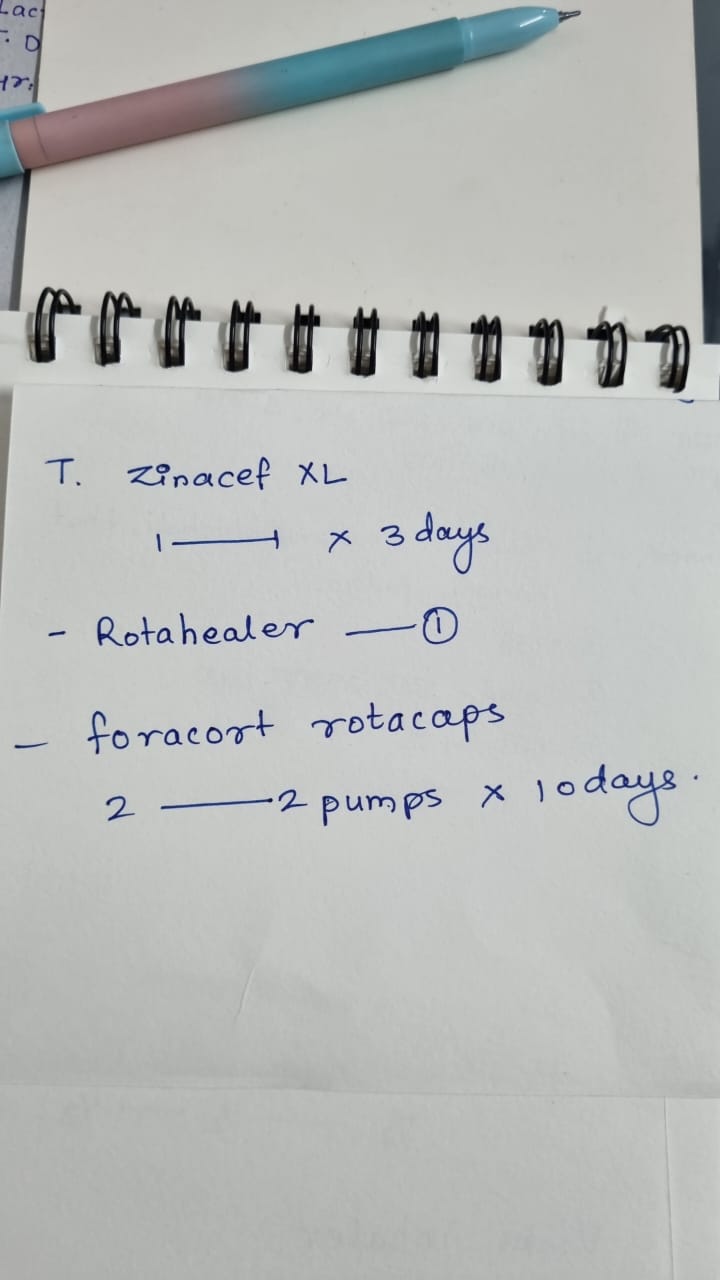 Lac
T. D
Hr.
T. Zinacef XL
1 — 1 x 3 days
- Rotahealer — ①
- foracort rotacaps
2 — 2 pumps x 10 days.